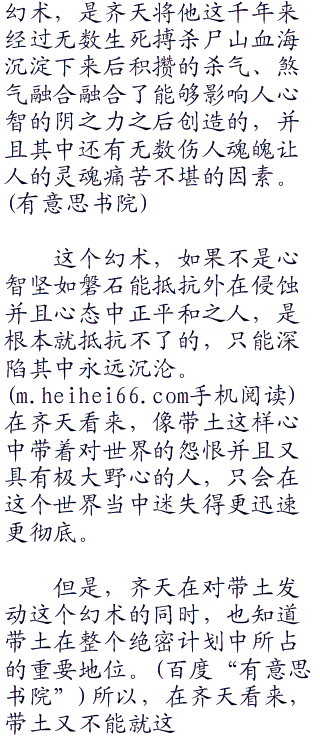 幻术，是齐天将他这千年来
经过无数生死搏杀尸山血海
沉淀下来后积攒的杀气、煞
气融合融合了能够影响人心
智的阴之力之后创造的，并
且其中还有无数伤人魂魄让
人的灵魂痛苦不堪的因素。
(有意思书院)
这个幻术，如果不是心
智坚如磐石能抵抗外在侵蚀
并且心态中正平和之人，是
根本就抵抗不了的，只能深
陷其中永远沉沦。
(m.heihei66.com手机阅读)
在齐天看来，像带土这样心
中带着对世界的怨恨并且又
具有极大野心的人，只会在
这个世界当中迷失得更迅速
更彻底。
但是，齐天在对带土发
动这个幻术的同时，也知道
带土在整个绝密计划中所占
的重要地位。(百度“有意思
书院”)所以，在齐天看来，
带土又不能就这